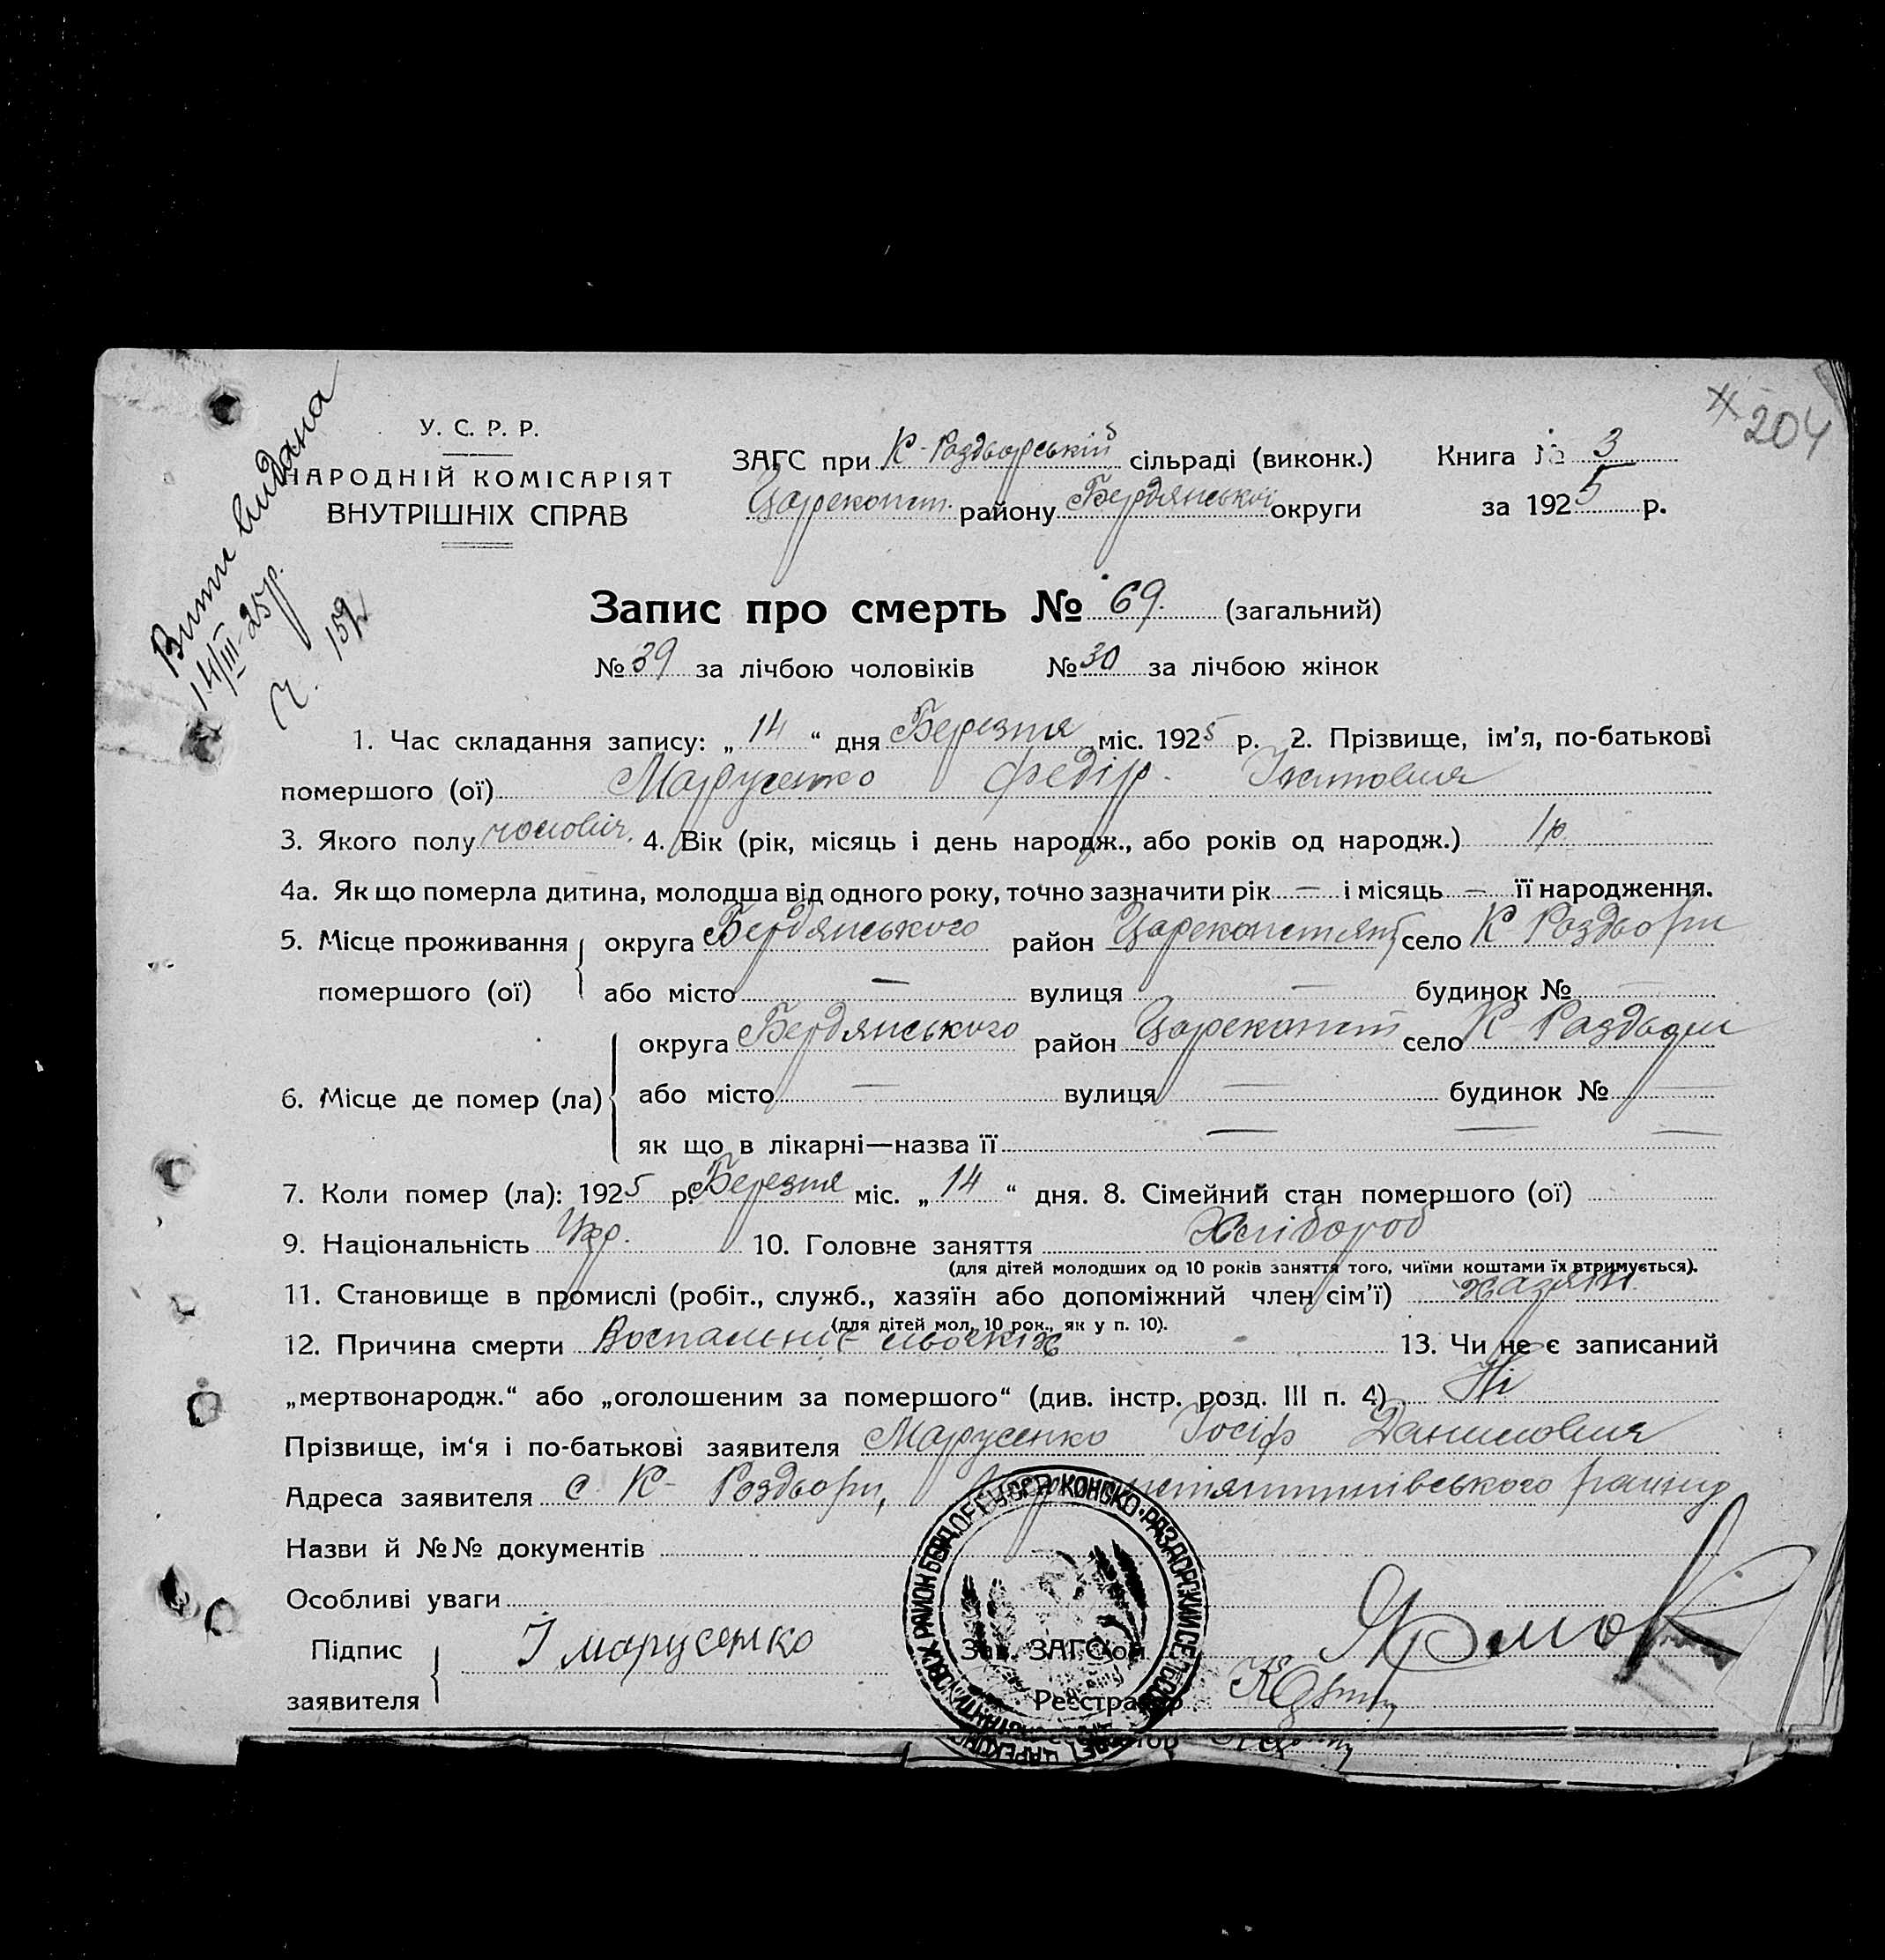 204
Витяг видана
14/III-25р.
Ч. 159
У. С. Р. Р.
НАРОДНІЙ КОМІСАРІЯТ
ВНУТРІШНІХ СПРАВ
ЗАГС при К-Роздворській сільраді (виконк.) Книга № 3
Цареконст. району Бердянської округи за 1925 р.
Запис про смерть № 69. (загальний)
№ 39 за лічбою чоловіків № 30 за лічбою жінок
1. Час складання запису: „ 14 “ дня Березня міс. 1925 р. 2. Прізвище, ім’я, по-батькові
помершого (ої) Марусенко Федір.
3. Якого полу чоловіч. 4. Вік (рік, місяць і день народж., або років од народж.) 1р.
4а. Як що померла дитина, молодша від одного року, точно зазначити рік — і місяць — її народження.
5. Місце проживання округа Бердянського район Цареконстянт село К Роздвори
помершого (ої) або місто — вулиця — будинок № —
округа Бердянського район Цареконст село К-Роздвори
6. Місце де помер (ла) або місто — вулиця — будинок № —
як що в лікарні—назва її — — —
7. Коли помер (ла): 1925 р. Березня міс. „ 14 “ дня. 8. Сімейний стан помершого (ої)
9. Національність Укр. 10. Головне заняття Хлібороб
(для дітей молодших од 10 років заняття того, чиїми коштами їх втримується).
11. Становище в промислі (робіт., служб., хазяїн або допоміжний член сім’ї) хазяїн.
(для дітей мол. 10 рок., як у п. 10).
12. Причина смерти Воспаление 13. Чи не є записаний
„мертвонародж.“ або „оголошеним за помершого“ (див. інстр. розд. III п. 4) Ні
Прізвище, ім‘я і по-батькові заявителя Марусенко Іосіф Данилович
Адреса заявителя с. К- Роздвори, Цареконстянтинівського району
Назви й №№ документів
Особливі уваги
Підпис
заявителя І Марусенко
Зав. ЗАГС'ом
Реєстратор